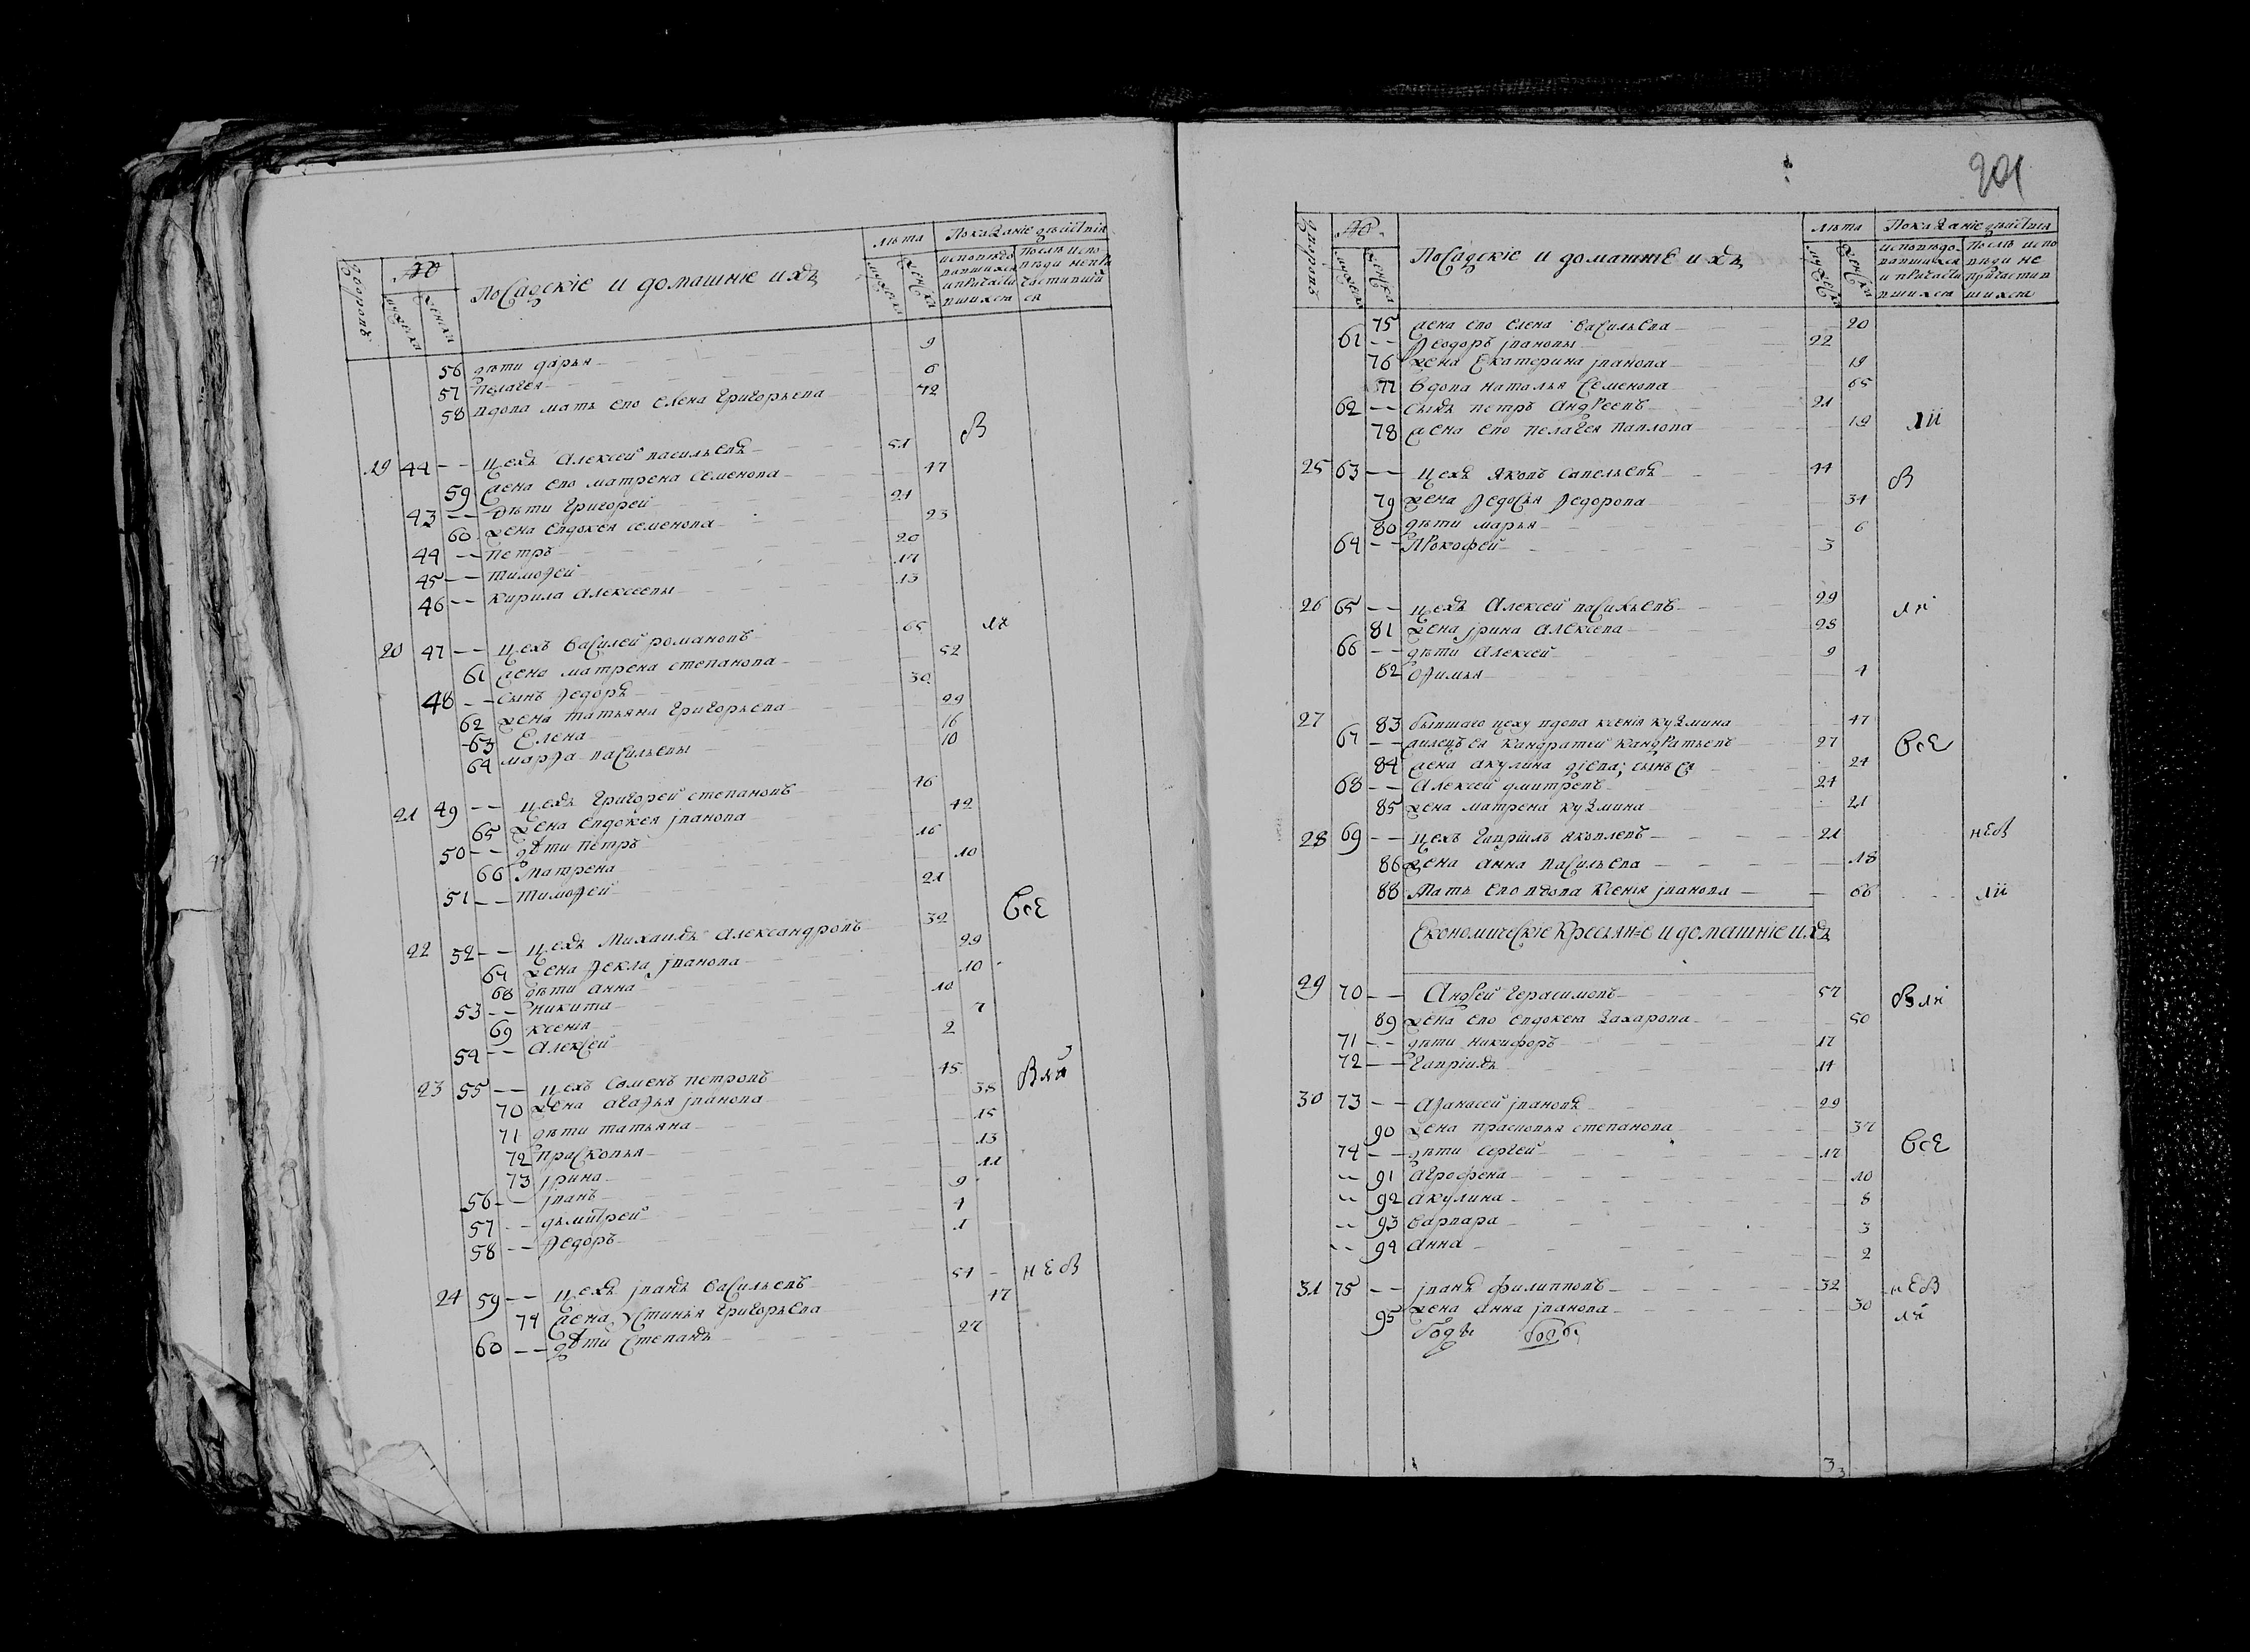 201
дворовъ | № | Посадскіе и домашніе ихъ | лѣта | Показаніе дѣйствія
мужеска | женска | мужеска | женска | исповѣдо вавшихся и причасти вшихся | Послѣ испо вѣди непри частивший ся
56 дѣти дарья 9
57 пелагея 6
58 вдова мать ево елена григорьева 72
19 44 -- цехъ алексей васильевъ 51 В
59 жена ево матрена семенова 47
43 -- дѣти григорей 21
60 жена евдокея семенова 23
44 -- петръ 20
45 -- тимоѳей 17
46 -- кирила алексеевы 13
20 47 -- цехъ василей романовъ 65
61 жена матрена степанова 52
48 -- сынъ ѳедоръ 30
62 жена татьяна григорьева 29
63 елена 16
64 марѳа васильевы 10
21 49 -- цехъ григорей степановъ 46
65 жена евдокея іванова 42
50 -- дѣти петръ 16
66 матрена 10
51 -- тимоѳей 21
22 52 -- цехъ михаилъ александровъ 32 Все
67 жена ѳекла іванова 29
68 дѣти анна 10
53 -- никита 10
69 ксенія 7
54 -- алексей 2
23 55 -- цехъ семенъ петровъ 45
70 жена агаѳья іванова 38
71 дѣти татьяна 15
72 прасковья 13
73 ірина 11
56 -- іванъ 9
57 -- дьмитрей 4
58 -- ѳедоръ 1
24 59 -- цехъ іванъ васильевъ 54 не В
74 жена устинья григорьева 47
60 -- дѣти степанъ 27
дворовъ | № | Посадскіе и домашніе ихъ | лѣта | Показаніе дѣйствія
мужеска | женска | мужеска | женска | исповѣдо вавшихся и причасти вшихся | Послѣ испо вѣди не причастив шихся
75 жена ево елена васильева 20
61 -- ѳеодоръ івановы 22
76 жена екатерина іванова 19
77 вдова наталья семенова 65
62 -- сынъ петръ андреевъ 21
78 жена ево пелагея павлова 19
25 63 -- цехъ яковъ савельевъ 44 В
79 жена ѳедосья ѳедорова 34
80 дѣти марья 6
64 -- прокофей 3
26 65 -- цехъ алексей васильевъ 29
81 жена ірина алексева 28
66 -- дѣти алексей 9
82 еѳимья 4
27 83 бывшаго цеху вдова ксенія кузмина 47
67 -- жилецъ ея кандратей кандратьевъ 27 Все
84 жена акулина діева, сынъ ея 24
68 -- алексей дмитревъ 24
85 жена матрена кузмина 21
28 69 -- цехъ гавріилъ яковлевъ 21 не В
86 жена анна васильева 18
88 мать ево вдова ксенія іванова 66
Економическіе крестьяне и домашніе ихъ
29 70 -- андрей герасимовъ 57
89 жена ево евдокея захарова 50
71 -- дѣти никифоръ 17
72 -- гавріилъ 14
30 73 -- аѳанасей івановъ 29
90 жена прасковья степанова 37
74 -- дѣти сергей 17 Все
91 агрофена 10
92 акулина 8
93 варвара 3
94 анна 2
31 75 -- іванъ филипповъ 32 не В
95 жена анна іванова 30